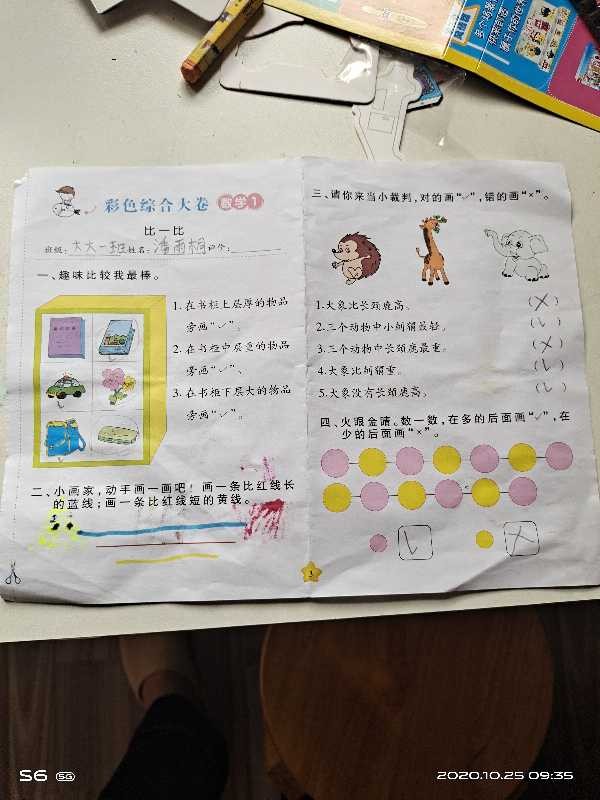 彩色综合大卷 数学1
比一比
班级:大大一班姓名:潘雨桐评价:
一、趣味比较我最棒。
1.在书柜上层厚的物品
旁画“✓”。
2.在书柜中层重的物品
旁画“✓”。
3.在书柜下层大的物品
旁画“✓”。
二、小画家,动手画一画吧!画一条比红线长
的蓝线;画一条比红线短的黄线。
三、请你来当小裁判,对的画“✓”,错的画“×”。
1.大象比长颈鹿高。 (×)
2.三个动物中小刺猬最轻。 (✓)
3.三个动物中长颈鹿最重。 (×)
4.大象比刺猬重。 (✓)
5.大象没有长颈鹿高。 (✓)
四、火眼金睛。数一数,在多的后面画“✓”,在
少的后面画“×”。
✓ ×
3
S6 5G
2020.10.25 09:35